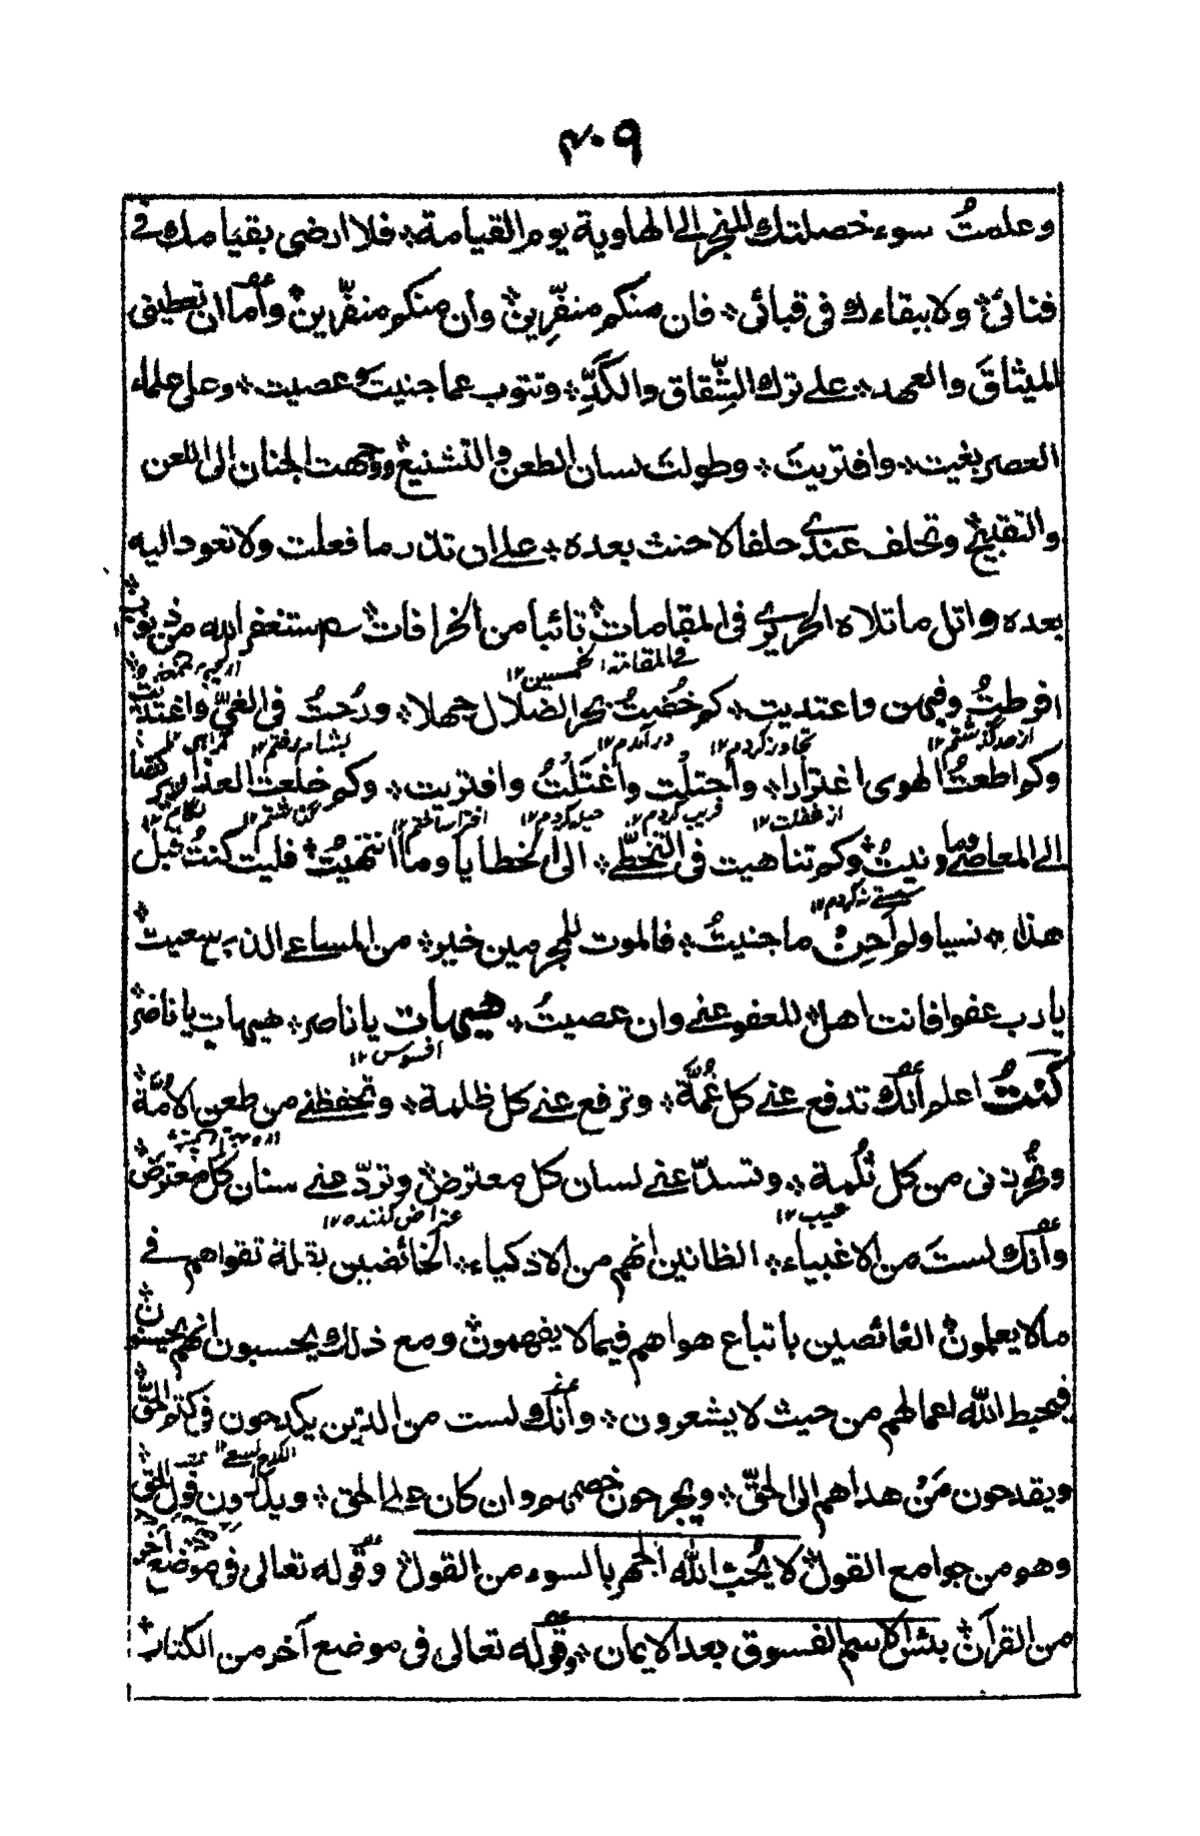 ٣٠٩
وعلمتُ سوء خصلتك المنجر إلى الهاوية يوم القيامة؞ فلا ارضى بقيامك في
فنائى؞ ولا ببقاءك في قبائى؞ فان منكم منفّرين؞ وأن منكم منفّرين؞ وأما ان تعطينى
الميثاقَ والعهد؞ على ترك الشِّقاق والكدِّ؞ وتتوب عما جنيتَ وعصيت؞ وعلى علماء
العصر بغيت؞ وافتريتَ؞ وطولت لسان الطعن والتشنيع؞ ووجهت الجنان الى اللعن
والتقبيح؞ وتحلف عندى حلفا لا حنث بعده؞ على ان تذر ما فعلت ولا تعود اليه
بعده واتل ما تلاه الحريرى فى المقامات؞ تائبا من الخرافات؞ استغفر الله من ذنوب؞
فى المقامة الخمسين ١٢
افرطتُ وفيهن واعتديت؞ كم خُضتُ بحر الضلال جهلا؞ ورُحتُ فى الغىّ واغتديت
از حد گذشتم ١٢ تجاوز كردم ١٢ در آمدم ١٢ بشام رفتم ١٢
وكم اطعتُ الهوى اغترارا؞ واحتلْت واغتَلْتُ وافتريت؞ وكم خلعت العذار ركضا
از غفلت ١٢ فريب كردم ١٢ حيله كردم ١٢ افترا ساختم ١٢
الى المعاصى وما ونيتُ؞ وكم تناهيت فى التخطّى؞ الى الخطايا وما انتهيتُ؞ فليت كنتُ قبل
سستى نه كردم ١٢
هذا؞ نسيا ولم أجنِ ما جنيتُ؞ فالموت للمجرمين خير؞ من المساعى التى سعيت؞
يا رب عفوا فانت اهل؞ للعفو عنى وان عصيتُ؞ هيهات يا ناصر؞ هيهات يا ناصر؞
افسوس ١٢
كنتُ اعلم أنك تدفع عنى كل غُمَّة؞ وترفع عنى كل ظلمة؞ وتحفظنى من طعن الأمَّة؞
وتُحرزنى من كل ثُلمة؞ وتسدّ عنى لسان كل معترض؞ وتردّ عنى سنان كل معترض؞
عيب ١٢ اعتراض كننده ١٢
وأنك لستَ من الاغبياء؞ الظانين انهم من الاذكياء؞ الخائضين بقلة تقواهم فى
مالا يعلمون؞ الغائصين باتباع هواهم فيما لا يفهمون؞ ومع ذلك يحسبون انهم يحسنون
فيحبط الله اعمالهم من حيث لا يشعرون؞ وأنك لست من الذين يكدحون فى كتم الحق؞
ويقدحون مَنْ هداهم الى الحقّ؞ ويجرحون خصمهم وان كان على الحق؞ ويذكرون قول الحق
وهو من جوامع القول؞ لا يُحبُّ الله الجهر بالسوء من القول؞ وقوله تعالى فى موضع آخر
من القرآن؞ بئس الاسم الفسوق بعد الايمان؞ وقوله تعالى فى موضع آخر من الكتاب؞